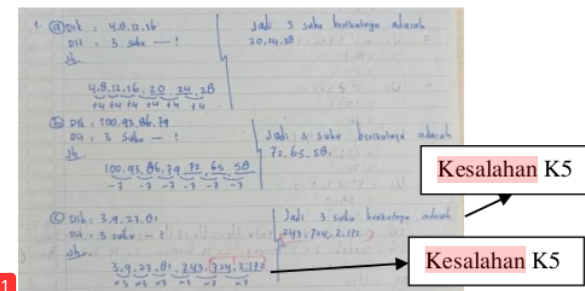 1. a Dik : 4.8.12.16
Dit : 3 suku — ?
Jb.
4.8.12.16.20.24.28
+4 +4 +4 +4 +4 +4
Jadi 3 suku berikutnya adalah
20,24,28
b Dik : 100.93.86.79
Dit : 3 Suku — ?
Jb.
100.93.86.79.72.65.58
-7 -7 -7 -7 -7 -7
Jadi 3 suku berikutnya adalah
72.65.58.
c Dik : 3.9.27.81
Dit : 3 suku — ?
Jb.
3.9.27.81.243.724.2.172
×3 ×3 ×3 ×3 ×3 ×3
Jadi 3 suku berikutnya adalah
243.724.2.172.
Kesalahan K5
Kesalahan K5
1